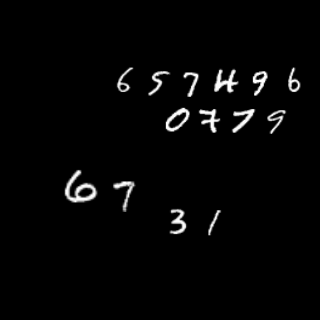 657496
0779
67
31